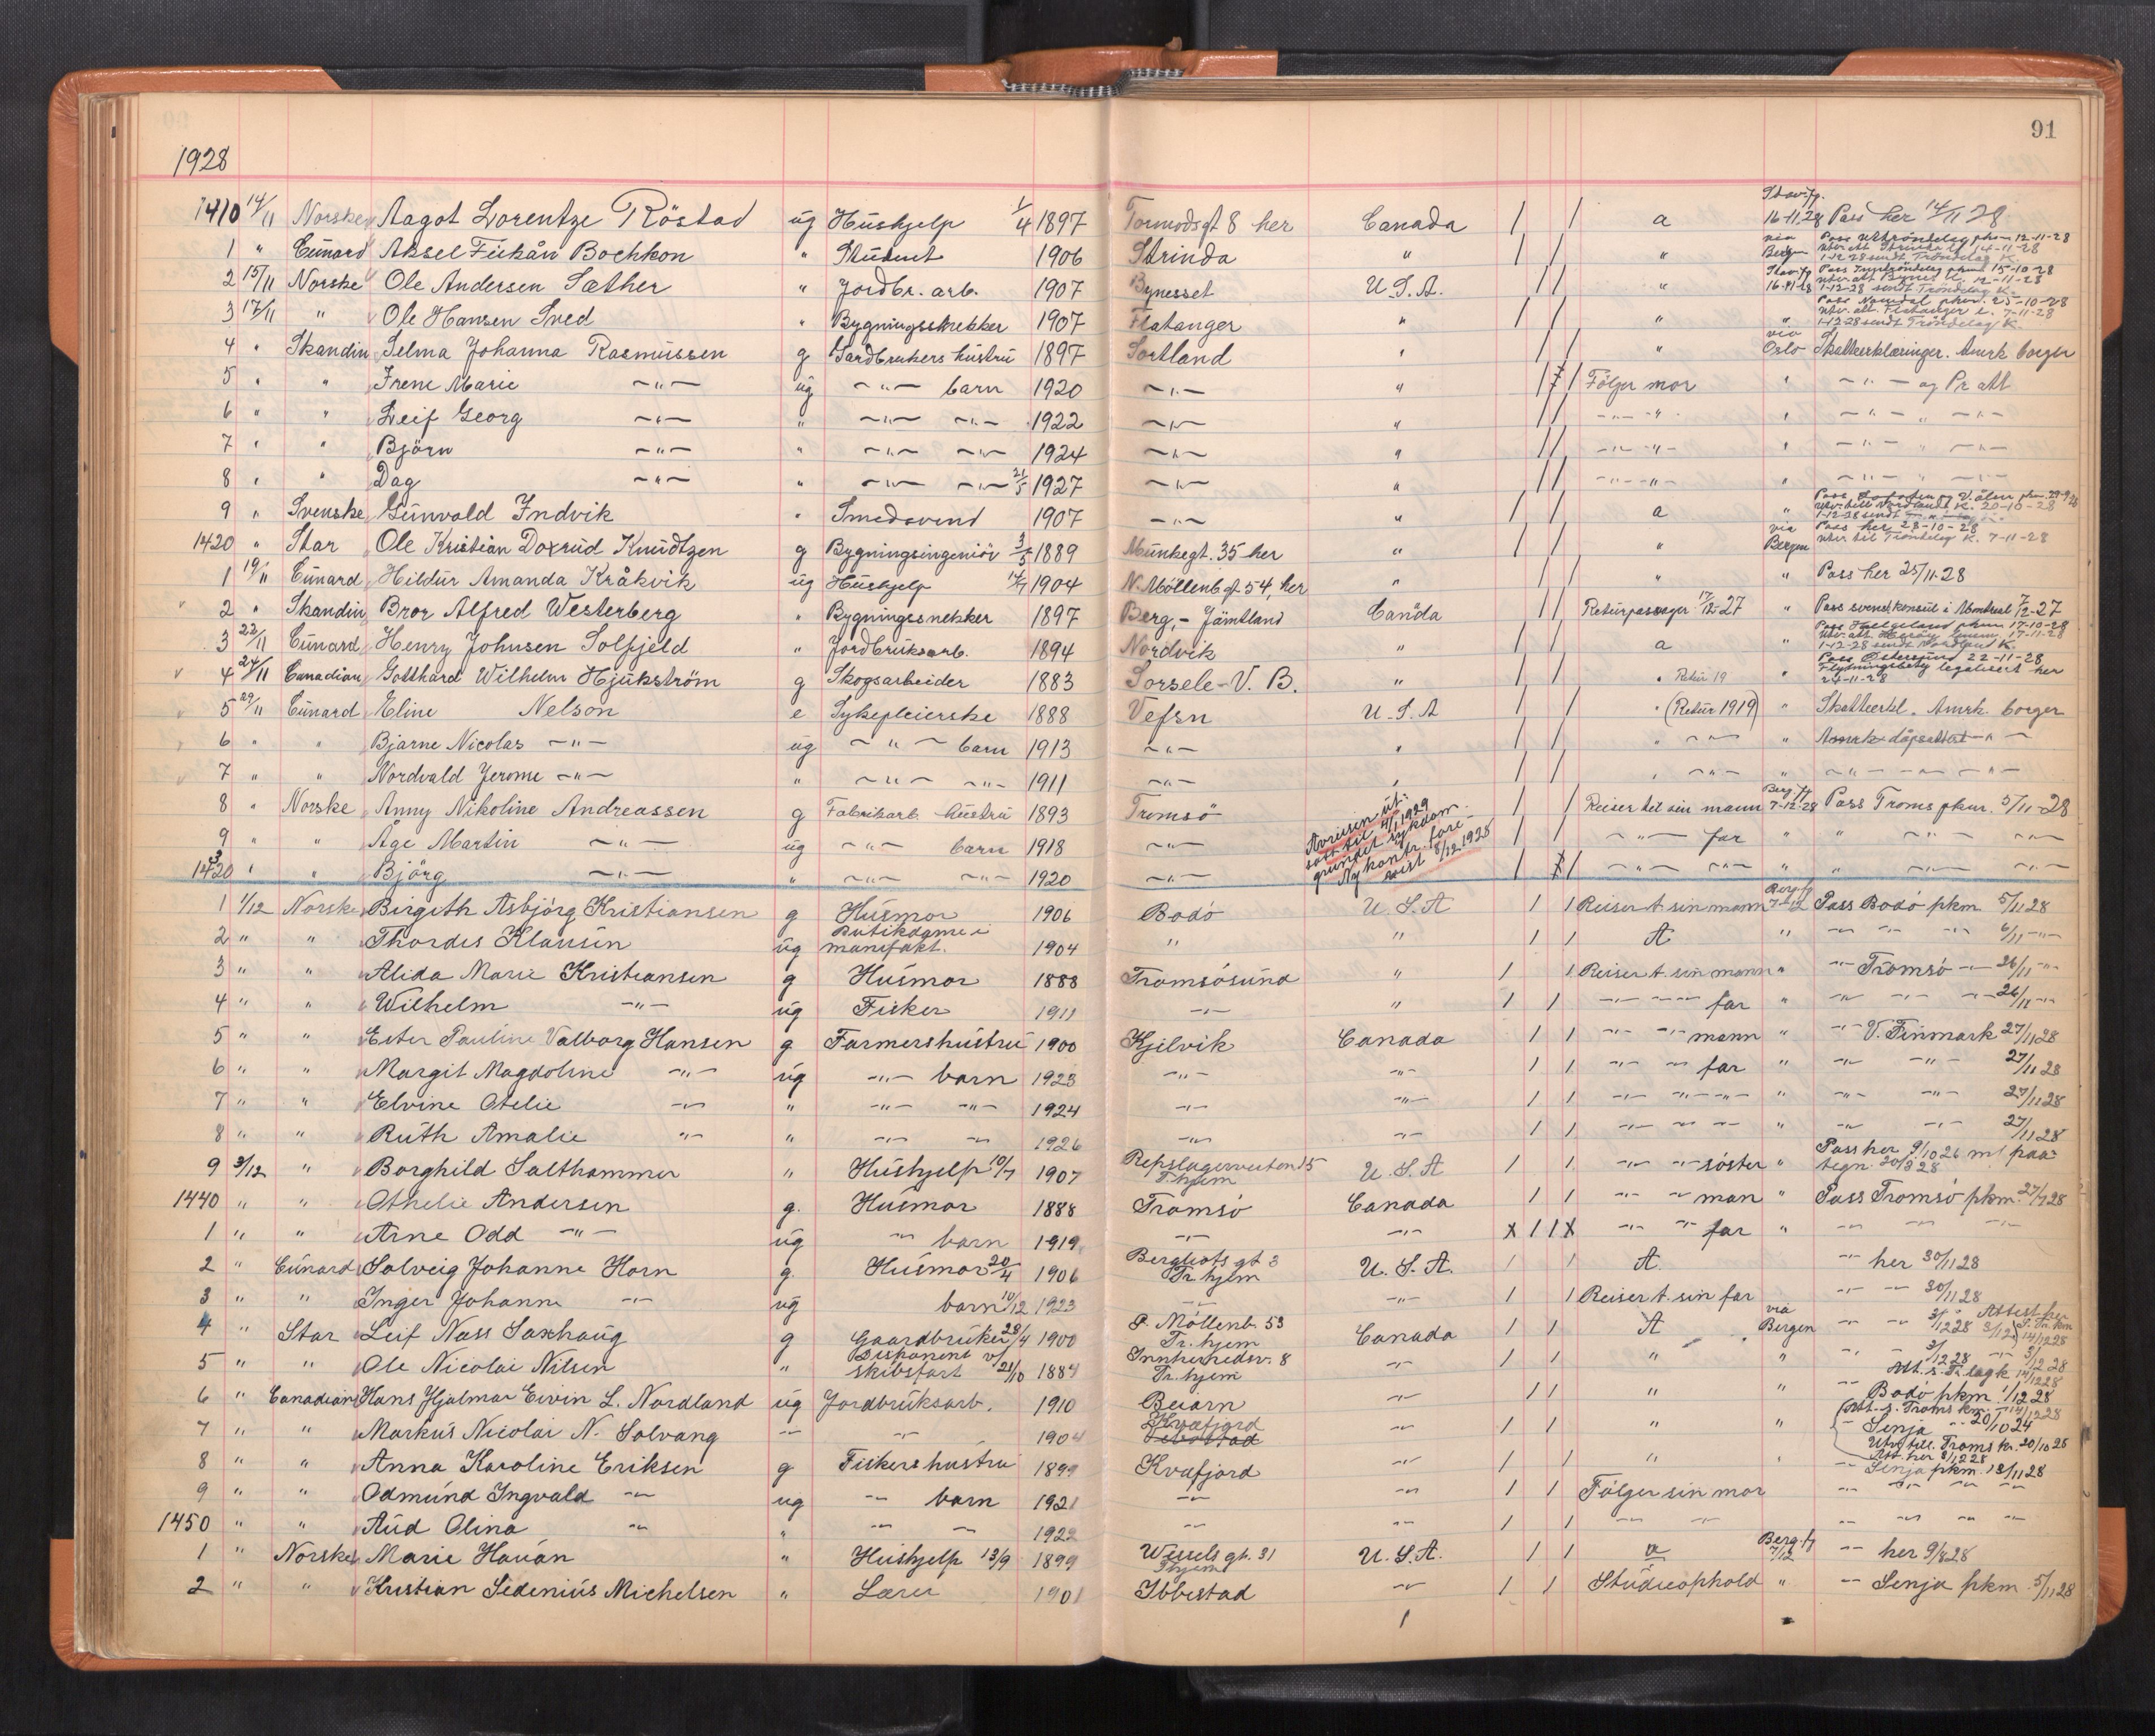 91
1928
1410 14/11 Norske Aagot Lorentze Röstad ug Hushjelp 1/4 1897 Tormodsgt 8 her Canada / / a Stav.fj. 16-11.28 Pass her 14/11 28
1 " Cunard Aksel Fukån Bochkon " Student 1906 Strinda " / / " via Bergen Pass Uttröndelag pkm 12-11-28
1-12-28 sendt Tröndelag K.
2 15/11 Norske Ole Andersen Sæther " Jordbr. arb. 1907 Bynesset U.S.A. / / " Stav.fj 16-11-28 15-10-28
1-12-28 sendt Tröndelag K.
3 17/11 " Ole Hansen Sved " Bygningssnekker 1907 Flatanger " / / " " Pass Namdal pkm. 25-10-28
Utv. att. Flatanger l. 7-11-28
1-12-28 sendt Tröndelag K.
4 " Skandin Selma Johanna Rasmussen g Gardbrukers hustru 1897 Sortland " / / " via Oslo Skatteerklæringer. Amrk borger
5 " " Irene Marie -"- ug -"- barn 1920 -"- " / / Fölger mor " -"- og Pr att
6 " " Leif Georg -"- " -"- -"- 1922 -"- " / / -"- -"- " -"- " -"-
7 " " Björn -"- " -"- -"- 1924 -"- " / / -"- -"- " -"- " -"-
8 " " Dag -"- " -"- -"- 21/5 1927 -"- " / / -"- -"- " -"- " -"-
9 " Svenske Gunvald Indvik " Smedsvend 1907 -"- " / / a " Pass Lofoten og V.ålen pkm. 29-9-28
Utv. bill Nordland K. 20-10-28
1-12-28 sendt
1420 " Star Ole Kristian Doxrud Knudtzen g Bygningsingeniör 3/5 1889 Munkegt. 35 her " / / " via Bergen Pass her 28-10-28
Utv. bil Tröndelag K. 7-11-28
1 19/11 Cunard Hildur Amanda Kråkvik ug Hushjelp 1904 N. Möllenb gt 54, her " / / " " Pass her 25/11-28
2 " Skandin Bror Alfred Westerberg " Bygningssnekker 1897 Berg,- Jämtland Canada / / Returpassager 17/12-27 " Pass svensk konsul i Montreal 7/12-27
3 22/11 Cunard Henry Johnsen Solfjeld " Jordbruksarb. 1894 Nordvik " / / a " Pass Helgeland pkm 17-10-28
Utv. att. Heröy lensm. 17-11-28
1-12-28 sendt Nordland K.
4 24/11 Canadian Gotthard Wilhelm Hjukström g Skogsarbeider 1883 Sorsele - V. B. " / / " Retur 19 " Pass Östersund 22-11-28
Flytningsbety legalisert her
24-11-28
5 29/11 Cunard Eline Nelson e Sykepleierske 1888 Vefsn U.S.A / / " (Retur 1919) " Skatteerkl. Amrk. borger
6 " " Bjarne Nicolas -"- ug -"- barn 1913 -"- " / / " -"- " Amrk dåpsattest -"-
7 " " Nordvald Jerome -"- " -"- -"- 1911 -"- " / / " -"- " -"- -"- -"-
8 " Norske Anny Nikoline Andreassen g Fabrikarb. hustru 1893 Tromsö / / Reiser til sin mann Berg.fj 7-12-28 Pass Troms pkm. 5/11-28
9 " " Åge Martin -"- ug -"- barn 1918 -"- / / -"- far " " -"- -"-
1430 " " Björg -"- " -"- -"- 1920 -"- / / -"- -"- " " -"- -"-
Avreisen ut-
satt til 4/1 1929
grundet sykdom.
Ny kontr. fore-
vist 18/12 1928
1 1/12 Norske Birgith Asbjörg Kristiansen g Husmor 1906 Bodö U.S.A / / Reiser t. sin mann Berg.fj 7/12 Pass Bodö pkm 5/11 28
2 " " Thordis Klausen ug Butikdame i manufakt. 1904 " " / / A " -"- -"- -"- 6/11 -"-
3 " " Alida Marie Kristiansen g Husmor 1888 Tromsösund " / / Reiser t. sin mann " -"- Tromsö -"- 26/11 -"-
4 " " Wilhelm -"- ug Fisker 1911 -"- " / / -"- -"- far " -"- -"- -"- 26/11 -"-
5 " " Ester Pauline Valborg Hansen g Farmershustru 1900 Kjelvik Canada / / -"- -"- mann " -"- V. Finmark 27/11 28
6 " " Margit Magdoline -"- ug -"- barn 1923 -"- -"- / / -"- -"- far " -"- -"- 27/11 28
7 " " Elvine Otelie -"- " -"- -"- 1924 -"- -"- / / -"- -"- -"- " -"- -"- 27/11 28
8 " " Ruth Amalie -"- " -"- -"- 1926 -"- -"- / / -"- -"- -"- " -"- -"- 27/11 28
9 3/12 " Borghild Salthammer " Hushjelp 10/7 1907 Repslagerveiten 15 Thjem U.S.A / / -"- -"- söster " Pass her 9/10 26 m/ paa-
tegn. 20/3 28
1440 " " Othelie Andersen g. Husmor 1888 Tromsö Canada / / -"- -"- man " Pass Tromsö pkm. 27/9 28
1 " " Arne Odd -"- ug -"- barn 1919 -"- -"- X / / X -"- -"- far " -"- -"- -"-
2 " Cunard Solveig Johanne Horn g. Husmor 20/4 1906 Bergliots gt 3 Tr.hjem U.S.A. / / A. -"- her 30/11 28
3 " " Inger Johanne -"- ug barn 10/12 1923 -"- -"- / / Reiser t. sin far -"- -"- 30/11 28
4 " Star Leif Nass Saxhaug g Gaardbruker 28/4 1900 P. Möllenb. 53 Tr. hjem Canada / / A via Bergen -"- -"- 3/12 28 Attest her
5 " " Ole Nicolai Nilsen " Disponent v/ skibsfart 21/10 1884 Innherredsv. 8 Tr. hjem -"- / / " " -"- -"- 3/12 28
6 " Canadian Hans Hjalmar Ervin L. Nordland ug Jordbruksarb. 1910 Beiarn -"- / / " " -"- Bodö pkm. 1/12 28
7 " " Markus Nicolai N. Solvang -"- -"- 1904 Kvæfjord -"- / / " " -"- Senja -"- 20/10 24
Utv. bill. Troms kr. 20/10 28
Att. her 3/12 28
8 " " Anna Karoline Eriksen g Fiskers hustru 1899 Kvæfjord -"- / / " " -"- Senja pkm. 13/11 28
9 " " Odmund Ingvald -"- ug -"- barn 1921 -"- -"- / / Fölger sin mor -"- -"- -"- -"-
1450 " " Aud Olina -"- " -"- -"- 1922 -"- -"- / / -"- -"- -"- -"- -"- -"-
1 " Norske Marie Hauån " Hushjelp 13/9 1899 Wessels gt. 31 Thjem U.S.A. / / a Berg.fj 7/12 -"- her 9/8 28
2 " " Kristian Sidenius Michelsen " Lærer 1901 Ibbestad -"- / / Studieophold " -"- Senja pkm. 5/11 28